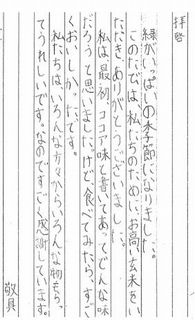 拝啓
緑がいっぱいの季節になりました。
このたびは、私たちのために、お高い玄米をい
ただき、ありがとうございました。
私は最初、ココア味と書いてあってどんな味
だろうと思いました。けど食べてみたら、すご
くおいしかったです。
私たちはいろんな方々からいろんな物もらっ
てうれしいです。なのですごく感謝しています。
敬具